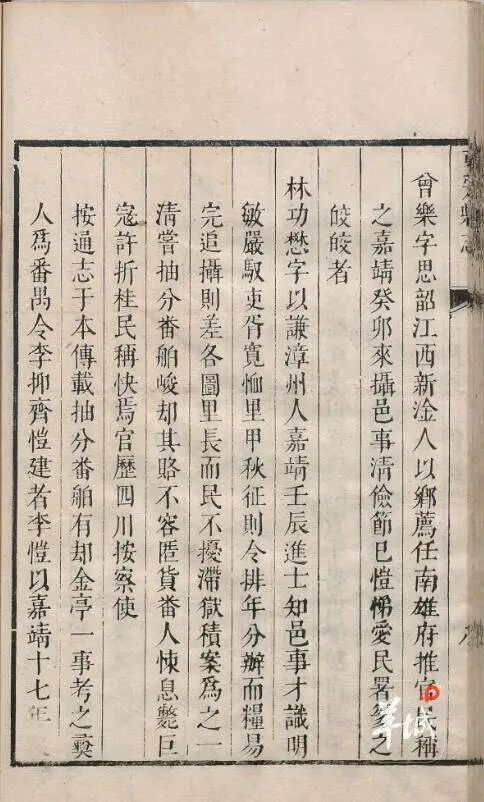 曾樂字思韶江西新淦人以鄉薦任南雄府推官民稱
之嘉靖癸卯來攝邑事清儉節已愷悌愛民署篆之
皎皎者
林功懋字以謙漳州人嘉靖壬辰進士知邑事才識明
敏嚴馭吏胥寛恤里甲秋征則令排年分辦而糧易
完追攝則差各圖里長而民不擾滯獄積案為之一
清嘗抽分番舶峻却其賂不容匿貨番人悚息斃巨
寇許折桂民稱快焉官歷四川按察使
按通志于本傳載抽分番舶有却金亭一事考之
人爲番禺令李抑齊愷建者李愷以嘉靖十七年
羊城